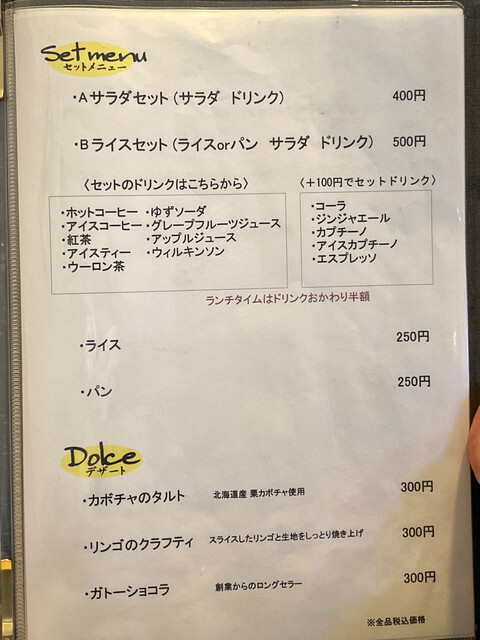 Set menu
セットメニュー
・Aサラダセット(サラダ ドリンク) 400円
・Bライスセット(ライスorパン サラダ ドリンク) 500円
〈セットのドリンクはこちらから〉 〈+100円でセットドリンク〉
・ホットコーヒー ・ゆずソーダ
・アイスコーヒー ・グレープフルーツジュース
・紅茶 ・アップルジュース
・アイスティー ・ウィルキンソン
・ウーロン茶
・コーラ
・ジンジャエール
・カプチーノ
・アイスカプチーノ
・エスプレッソ
ランチタイムはドリンクおかわり半額
・ライス 250円
・パン 250円
Dolce
デザート
・カボチャのタルト 北海道産 栗カボチャ使用 300円
・リンゴのクラフティ スライスしたリンゴと生地をしっとり焼き上げ 300円
・ガトーショコラ 創業からのロングセラー 300円
※全品税込価格